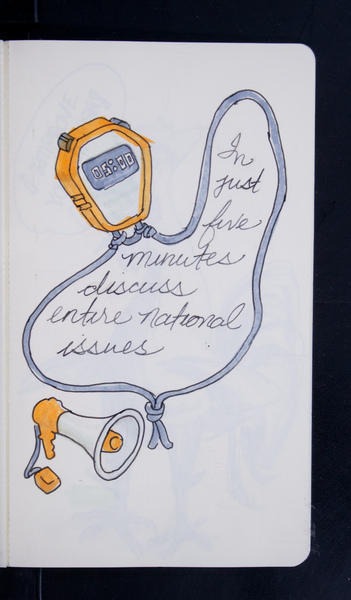 05:00
In
just
five
minutes
discuss
entire national
issues